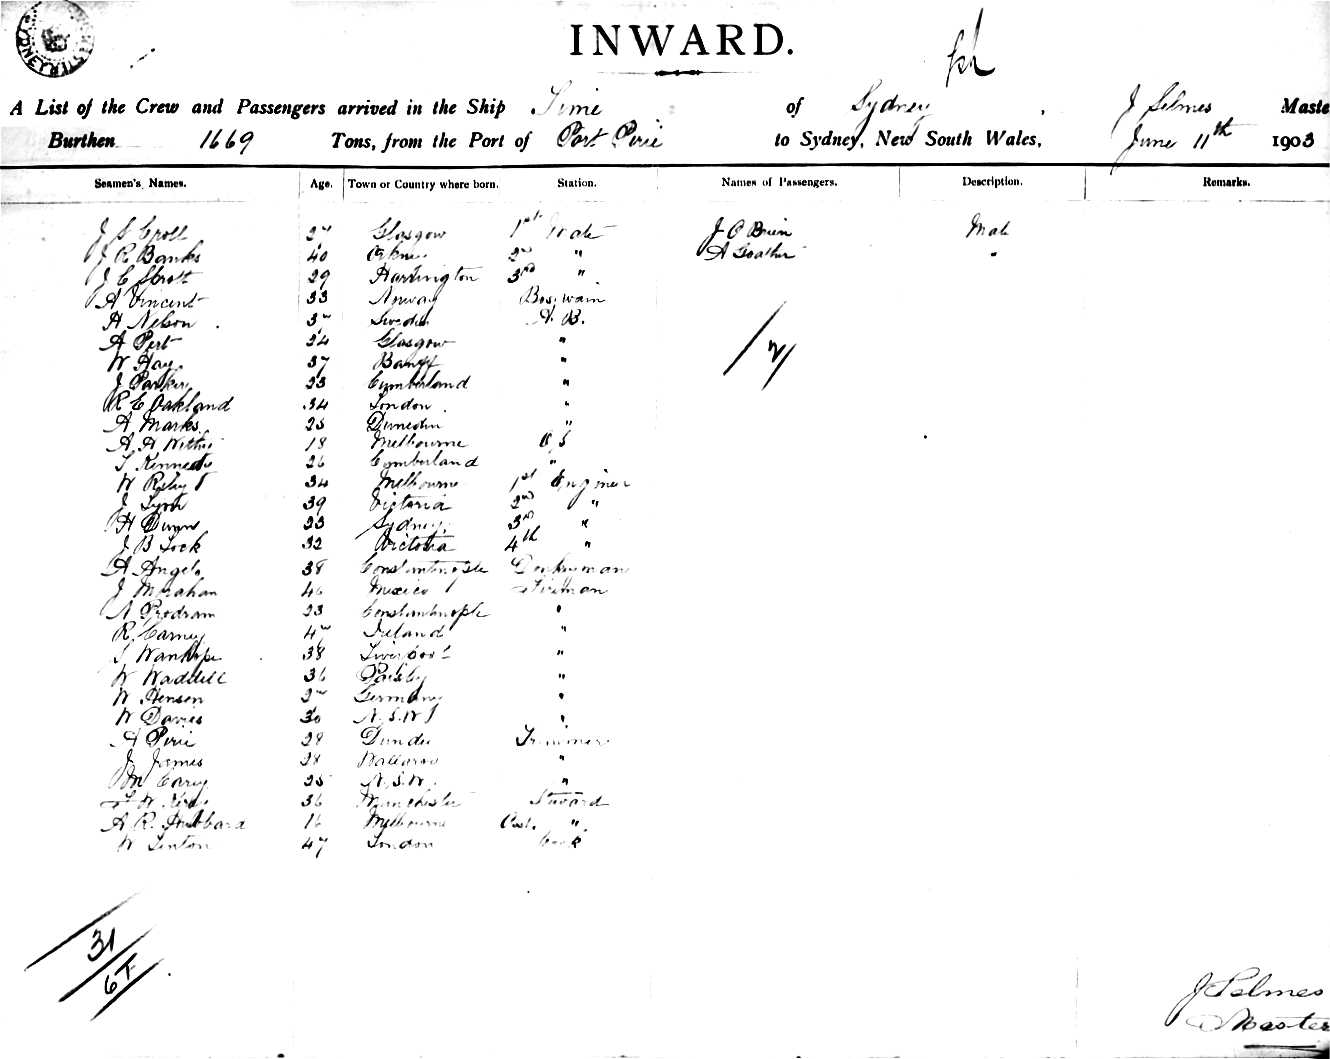 INWARD.
A List of the Crew and Passengers arrived in the Ship Time of Sydney, J Selmes Maste
Burthen 1669 Tons, from the Port of Port Pirie to Sydney, New South Wales, June 11th 1903
Seamen's Names. Age. Town or Country where born. Station. Names of Passengers. Description. Remarks.
J S Croll 27 Glasgow 1st Mate J O Brien Mate
J R Banks 40 Orkney 2nd " A "
J C 29 Harrington 3rd "
A Vincent 33 Norway Boswain
H Nelson 37 Sweden A. B.
A Pert 24 Glasgow "
W Hay 37 Banff "
J Parker 23 Cumberland "
R E Oakland 34 London "
A Marks 25 Dunedin "
A H 18 Melbourne O S
T Kennedy 26 Cumberland "
W 34 Melbourne 1st Engineer
J 39 Victoria 2nd "
H 23 Sydney 3rd "
J B Lock 32 Victoria 4th "
A Angelo 38 Constantinople Donkeyman
J 46 Mexico Fireman
A Prodram 23 Constantinople "
R. Carney 47 Ireland "
38 Liverpool "
W Waddell 36 Paisley "
W Henson 27 Germany "
W Davies 30 N. S. W "
A Pirie 28 Dundee Trimmer
J James 28 Ballarat "
M Carey 25 N. S. W. "
W 36 Manchester Steward
A R. Hubbard 16 Melbourne Asst. "
W Linton 47 London Cook
2/
31
6
J Selmes
Master